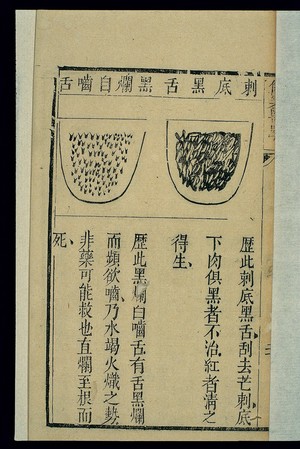 刺底黑舌
黑爛自嚙舌
歷此刺底黑舌刮去芒刺底
下肉俱黑者不治紅者清之
得生
歷此黑爛自嚙舌有舌黑爛
而頻欲嚙乃水竭火熾之勢
非藥可能救也直爛至根而
死